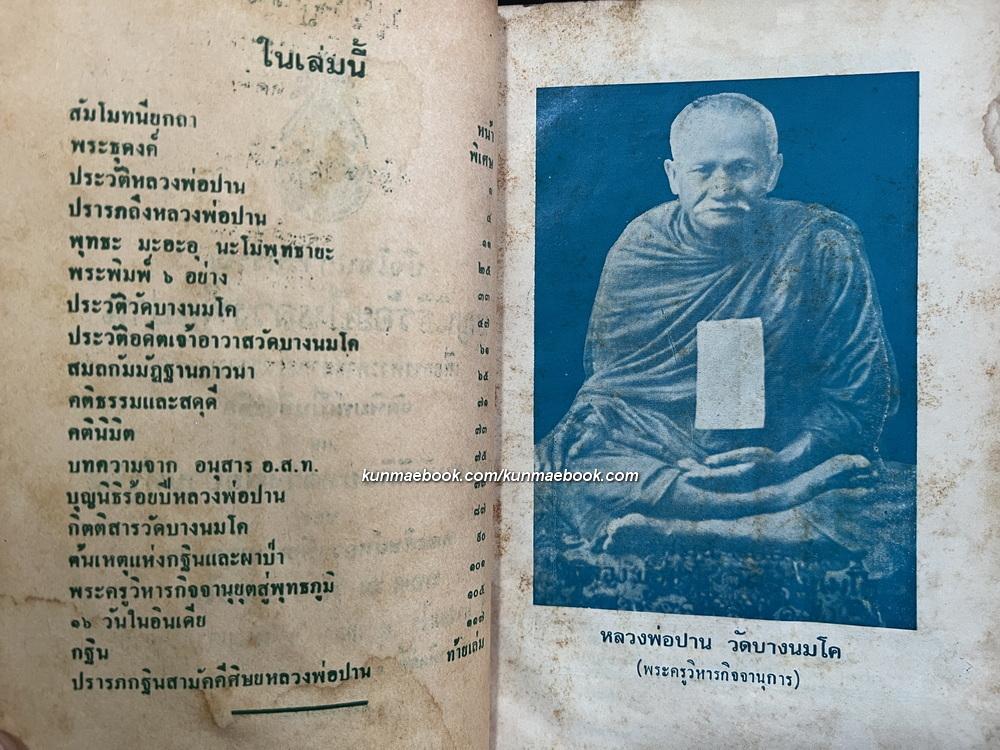 ในเล่มนี้
หน้า
สัมโมทนียกถา พิเศษ
พระธุดงค์ ๑
ประวัติหลวงพ่อปาน ๔
ปรารภถึงหลวงพ่อปาน ๑๑
พุทธะ มะอะอุ นะโมพุทธายะ ๒๕
พระพิมพ์ ๖ อย่าง ๓๓
ประวัติวัดบางนมโค ๔๗
ประวัติอดีตเจ้าอาวาสวัดบางนมโค ๖๑
สมถกัมมัฏฐานภาวนา ๖๕
คติธรรมและสดุดี ๗๑
คตินิมิต ๗๓
บทความจาก อนุสาร อ.ส.ท. ๗๕
บุญนิธิร้อยปีหลวงพ่อปาน
กิตติสารวัดบางนมโค ๘๗
ต้นเหตุแห่งกฐินและผาป่า ๙๐
พระครูวิหารกิจจานุยุตสู่พุทธภูมิ ๑๐๑
๑๖ วันในอินเดีย ๑๐๕
กฐิน ๑๑๗
ปรารภกฐินสามัคคีศิษยหลวงพ่อปาน ท้ายเล่ม
หลวงพ่อปาน วัดบางนมโค
(พระครูวิหารกิจจานุการ)
kunmaebook.com/kunmaebook.com